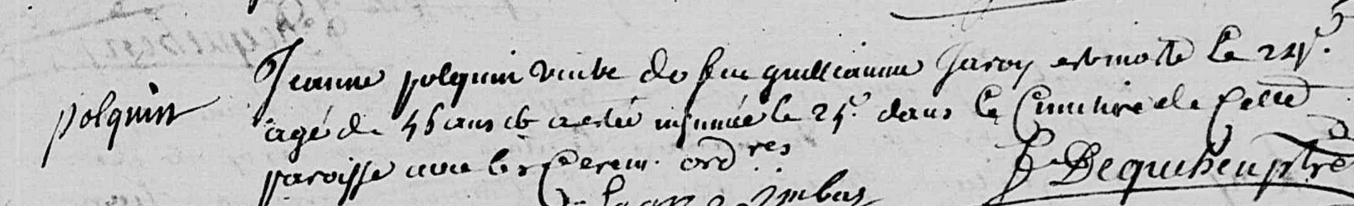 polquin
Jeanne polquin veuve de feu guillaume Jaroy est morte le 24e.
agé de 46 ans et a esté inhumée le 25e. dans le Cimitire de cette
paroisse avec les Cerem. ordres